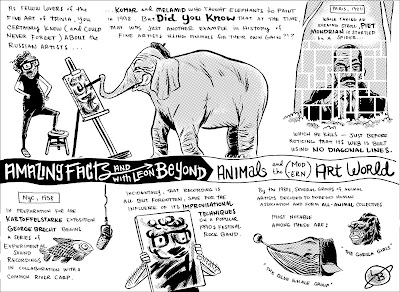 AS FELLOW LOVERS OF THE
FINE ART OF TRIVIA, YOU
CERTAINLY KNOW (AND COULD
NEVER FORGET) ABOUT THE
RUSSIAN ARTISTS ...
... KOMAR and MELAMID WHO TAUGHT ELEPHANTS TO PAINT
IN 1998. BUT DID YOU KNOW THAT AT THE TIME,
THAT WAS JUST ANOTHER EXAMPLE IN HISTORY OF
FINE ARTISTS USING ANIMALS FOR THEIR OWN GAIN???
PARIS, 1921
WHILE TAKING AN
EVENING STROLL, PIET
MONDRIAN IS STARTLED
BY A SPIDER
WHICH HE KILLS — JUST BEFORE
NOTICING THAT ITS WEB IS BUILT
USING NO DIAGONAL LINES.
AMAZING FACTS AND WITH LEON BEYOND
ANIMAL and the (MOD ERN) ART WORLD
NYC, 1958
IN PREPARATION FOR HIS
KARTOFFELSTARKE EXPOSITION
GEORGE BRECHT BEGINS
A SERIES OF
EXPERIMENTAL
SOUND
RECORDINGS
IN COLLABORATION WITH A
COMMON RIVER CARP.
INCIDENTALLY, THAT RECORDING IS
ALL BUT FORGOTTEN, SAVE FOR THE
INFLUENCE OF ITS IMPROVISATIONAL
TECHNIQUES
ON A POPULAR
1990'S FESTIVAL
ROCK BAND.
BY THE 1980'S, SEVERAL GROUPS OF ANIMAL
ARTISTS DECIDED TO FOREGO HUMAN
ASSOCIATION AND FORM ALL-ANIMAL COLLECTIVES
MOST NOTABLE
AMONG THESE ARE:
"THE BLUE WHALE GROUP"
"THE GUERILLA GIRLS"